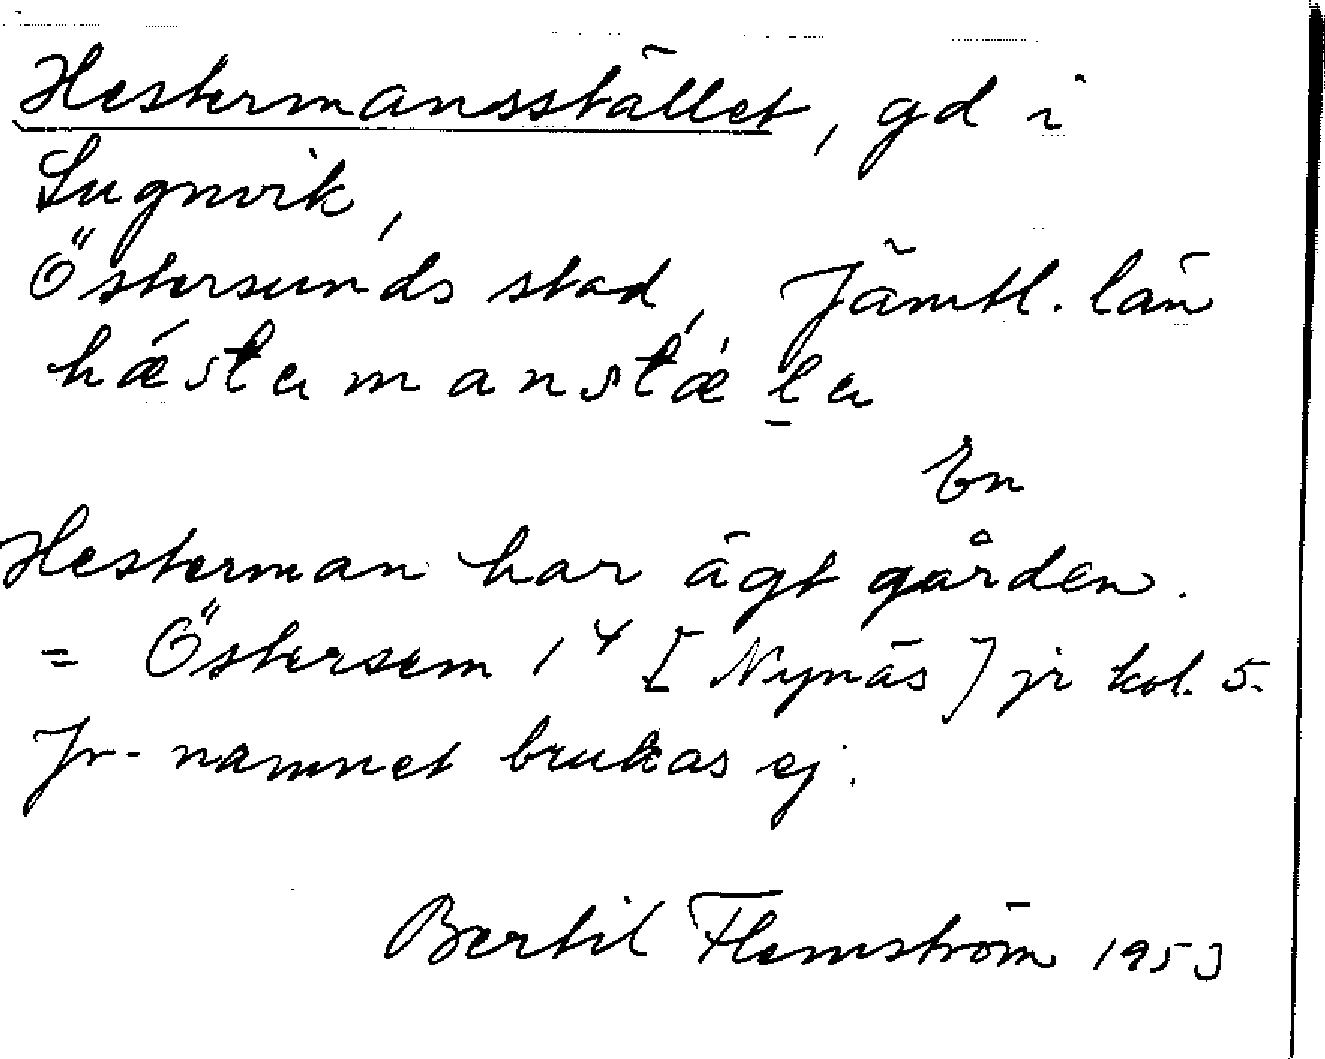 Hestermansstället, gd i
Lugnvik,
Östersunds stad, Jämtl. län
hǽstamanstǽla
En
Hesterman har ägt gården.
= Östersem 1⁴ [Nynäs] jr kol. 5.
Jr-namnet brukas ej.
Bertil Flemström 1953